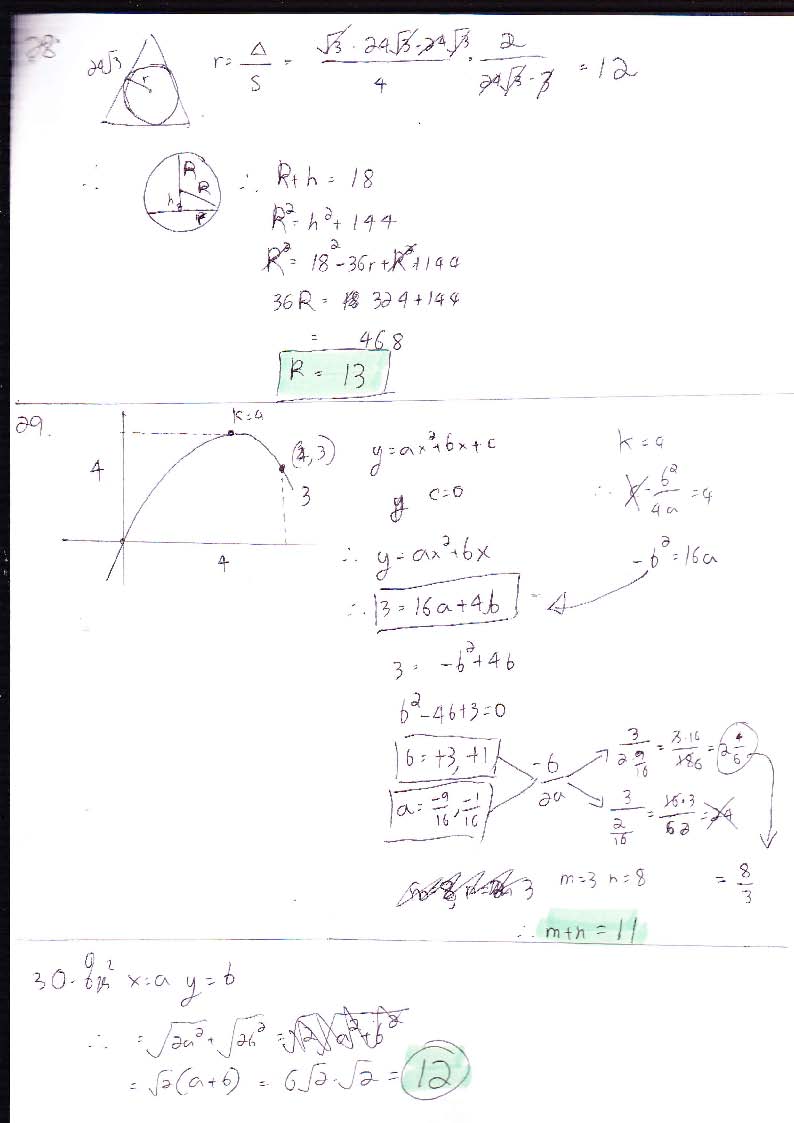 28
24√3
r
r = Δ/S = √3 · 24√3 · 24√3 / 4 · 2 / 24√3 · 3 = 12
∴
R
R
h
r
∴ R + h = 18
R² = h² + 144
R² = 18² - 36r + R² + 144
36R = 324 + 144
= 468
R = 13
29.
k=4
(4, 3)
4
3
4
y = ax² + bx + c
y c=0
∴ y = ax² + bx
∴ 3 = 16a + 4b
3 = -b² + 4b
b² - 4b + 3 = 0
b = +3, +1
a = -9/16, -1/16
k = 4
∴ -b²/4a = 4
-b² = 16a
-b/2a
3 / 2 9/16 = 3·16/186 = 2 4/6
3 / 2/16 = 16·3/62 = 24
= 8/3
m=3 n=8
∴ m+n = 11
30. x=a y=b
∴ = √2a² + √2b² = √2 √a²+b²
= √2(a+b) = 6√2·√2 = 12